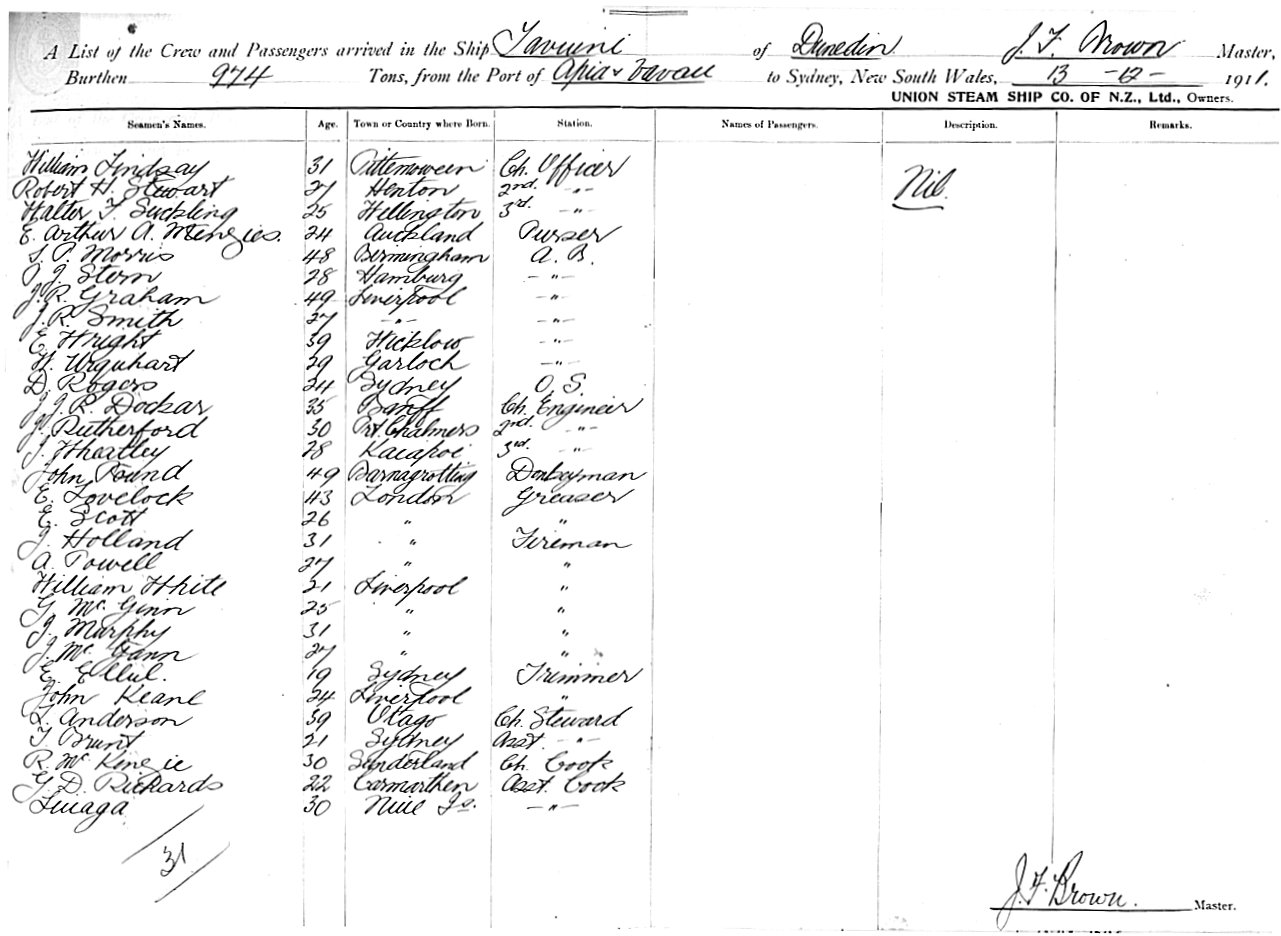 A List of the Crew and Passengers arrived in the Ship Taviuni of Dunedin J. F. Brown Master,
Burthen 974 Tons, from the Port of Apia & Vavau to Sydney, New South Wales, 13 -12- 1911.
UNION STEAM SHIP CO. OF N.Z., Ltd., Owners.
Seamen's Names. Age. Town or Country where Born. Station. Names of Passengers. Description. Remarks.
William Lindsay 31 Pittenweem Ch. Officer
Nil.
Robert H. Stewart 27 Henton 2nd. -"-
Walter F. Suckling 25 Wellington 3rd. -"-
E. Arthur A. Menzies. 24 Auckland Purser
S. P. Morris 48 Birmingham A. B.
J. Stern 28 Hamburg -"-
J. R. Graham 49 Liverpool -"-
J. R. Smith 27 -"- -"-
E. Wright 39 Wicklow -"-
W. Urquhart 29 Garloch -"-
D. Rogers 24 Sydney O. S.
J. J. R. Dockar 35 Banff Ch. Engineer
J. Rutherford 30 Prt Chalmers 2nd. -"-
J. Wheatley 28 Kaiapoi 3rd. "
John Pound 49 Barnagrotting Donkeyman
E. Lovelock 43 London Greaser
E. Scott 26 " "
J. Holland 31 " Fireman
A. Powell 27 " "
William White 21 Liverpool "
G. McGinn 25 " "
J. Murphy 31 " "
J. McGann 27 " "
E. Ellul. 19 Sydney Trimmer
John Keane 24 Liverpool "
L. Anderson 39 Otago Ch. Steward
T. Brunt 21 Sydney Asst. -"-
R. McKenzie 30 Sunderland Ch. Cook
G. D. Rickards 22 Carmarthen Asst. Cook
Liuaga 30 Niue Is. -"-
31
J. F. Brown. Master.